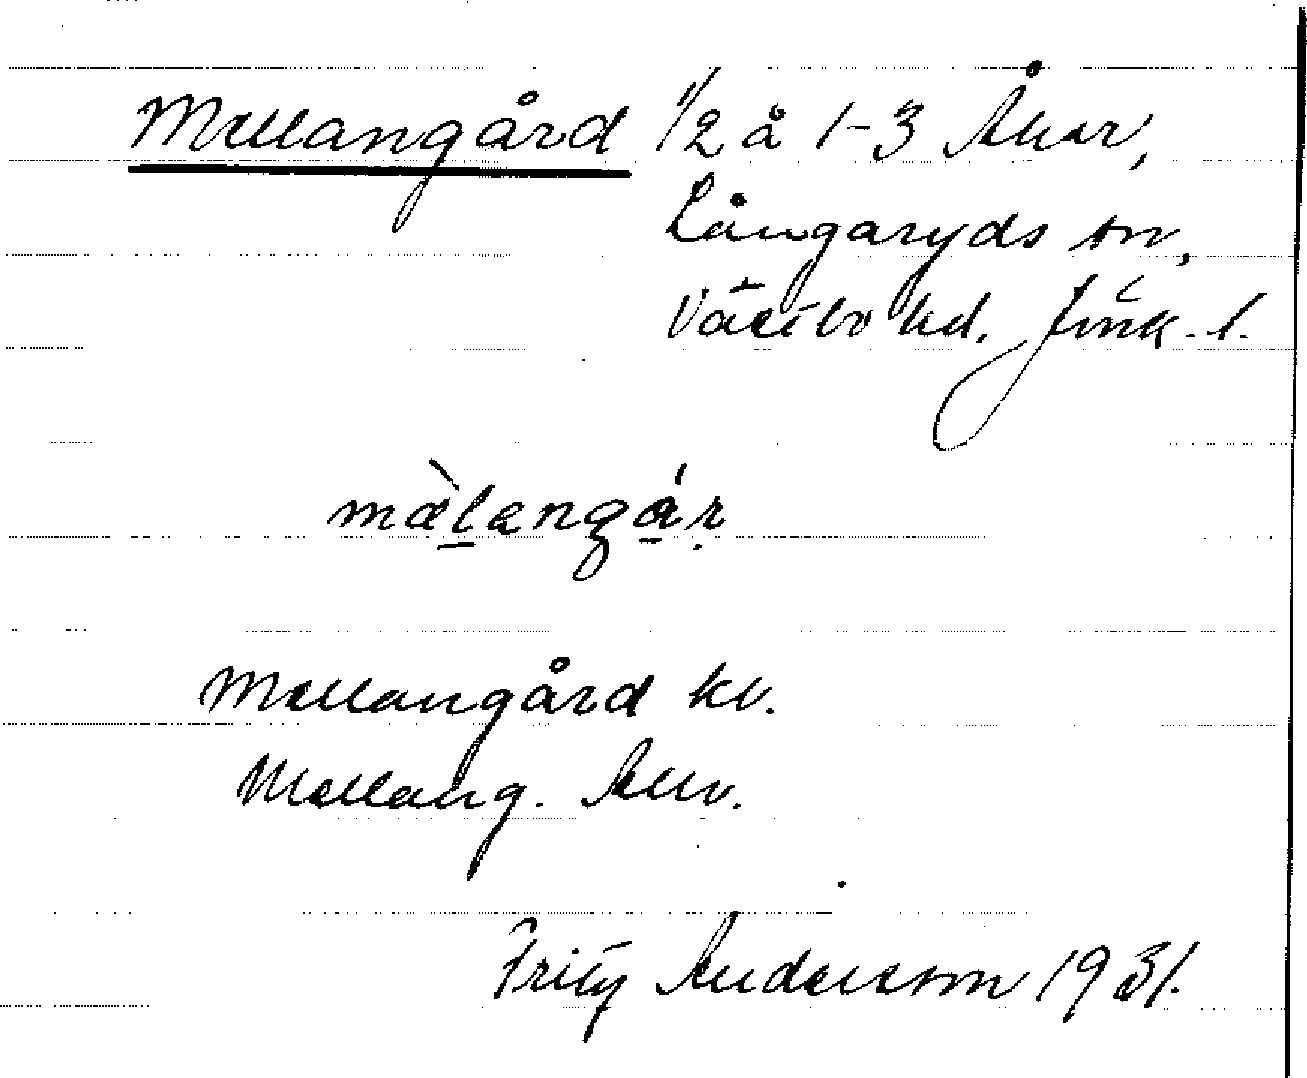 Mellangård 1/2 å 1-3 Åkar,
Långaryds sn,
Västbo hd. Jönk. l.
mæ̀langár
Mellangård kv.
Mellang. Allv.
Fritz Anderson 1931.